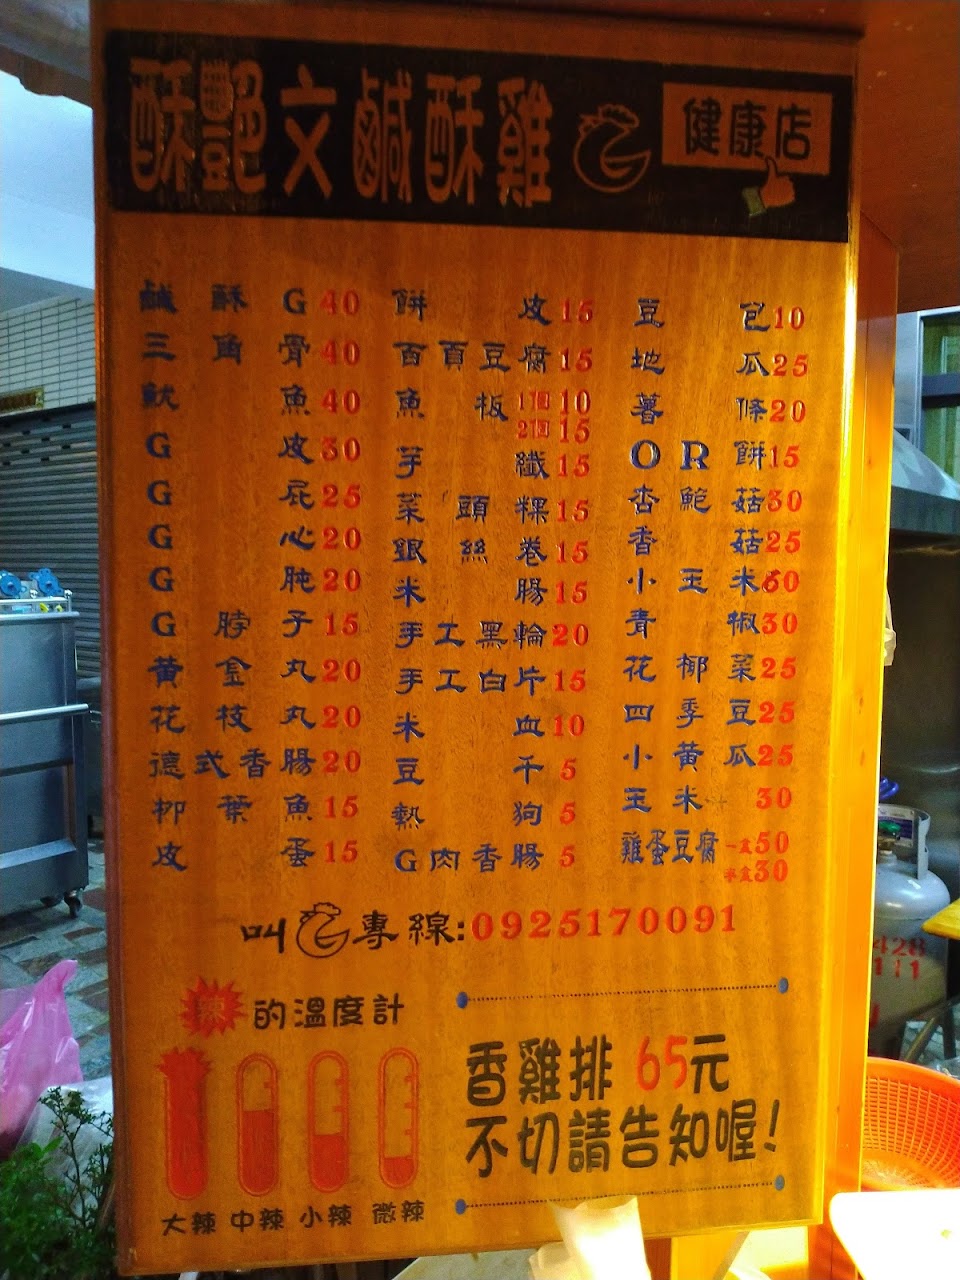 酥艷文鹹酥雞 健康店
鹹酥G 40
三角骨 40
魷魚 40
G皮 30
G屁 25
G心 20
G肫 20
G脖子 15
黃金丸 20
花枝丸 20
德式香腸 20
柳葉魚 15
皮蛋 15
餅皮 15
百頁豆腐 15
魚板 1個 10
2個 15
芋纖 15
菜頭粿 15
銀絲卷 15
米腸 15
手工黑輪 20
手工白片 15
米血 10
豆干 5
熱狗 5
G肉香腸 5
豆包 10
地瓜 25
薯條 20
OR餅 15
杏鮑菇 30
香菇 25
小玉米 60
青椒 30
花椰菜 25
四季豆 25
小黃瓜 25
玉米 30
雞蛋豆腐 一盒 50
半盒 30
叫 專線:0925170091
辣的溫度計
大辣 中辣 小辣 微辣
香雞排 65元
不切請告知喔!